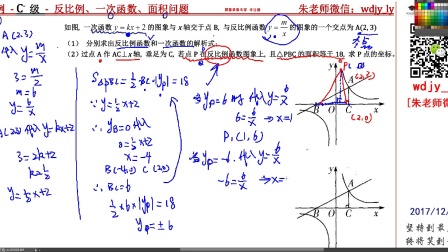 例 - C 级 - 反比例、一次函数、面积问题
【朱老师微信: wdjy_ly】
如图, 一次函数 y = kx + 2 的图象与 x 轴交于点 B, 与反比例函数 y = m/x 的图象的一个交点为 A(2,3)
(1) 分别求出反比例函数和一次函数的解析式;
(2) 过点 A 作 AC⊥x 轴, 垂足为 C, 若点 P 在反比例函数图象上, 且△PBC 的面积等于 18, 求 P 点的坐标.
y = m/x
3 = m/2
m = 6
y = 6/x
y = kx+2
3 = 2k+2
k = 1/2
y = 1/2x+2
S△PBC = 1/2·BC·|yP| = 18
∵ y = 1/2x+2
yB = 0
0 = 1/2x+2
x = -4
C(2,0)
∴ BC = 6
1/2×6×|yP| = 18
yP = ±6
当 yP = 6 时 代入 y = 6/x
6 = 6/x ⇒ x = 1
P₁(1,6)
当 yP = -6 代入 y = 6/x
-6 = 6/x ⇒ x =
P₁
(2,3)
A
B
O
C
x
(2,0)
y
A
B
O
C
x
wdjy
【朱老师微
2017/12/